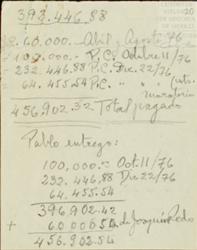 392.446,88
60.000. Abril y Agosto 76
100.000.= P.C. Octubre 11/76
232.446.88 P.C. Dic. 22/76
64.455.54 P.C. " " "
moratorios
456.902.32 Total pagado
Pablo entrego:
100,000.= Oct. 11/76
232,446,88 Dic 22/76
64.455.54
396,902.42
+ 60.000 de Joaquin
456.902.54